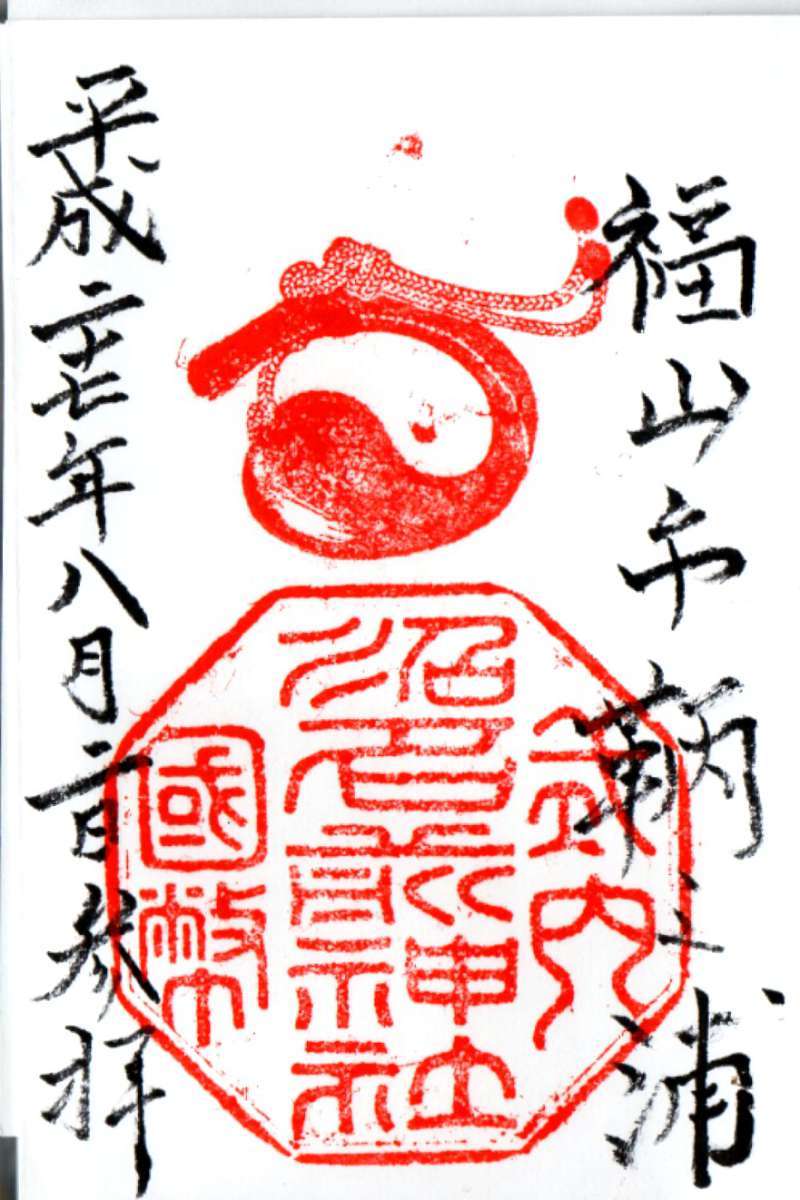 福山市鞆之浦
式内
沼名前神社
國幣
平成二十七年八月二日参拝